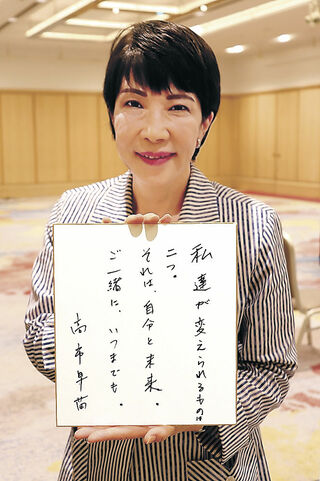 私達が変えられるものは
二つ。
それは、自分と未来。
ご一緒に、いつまでも。
高市早苗